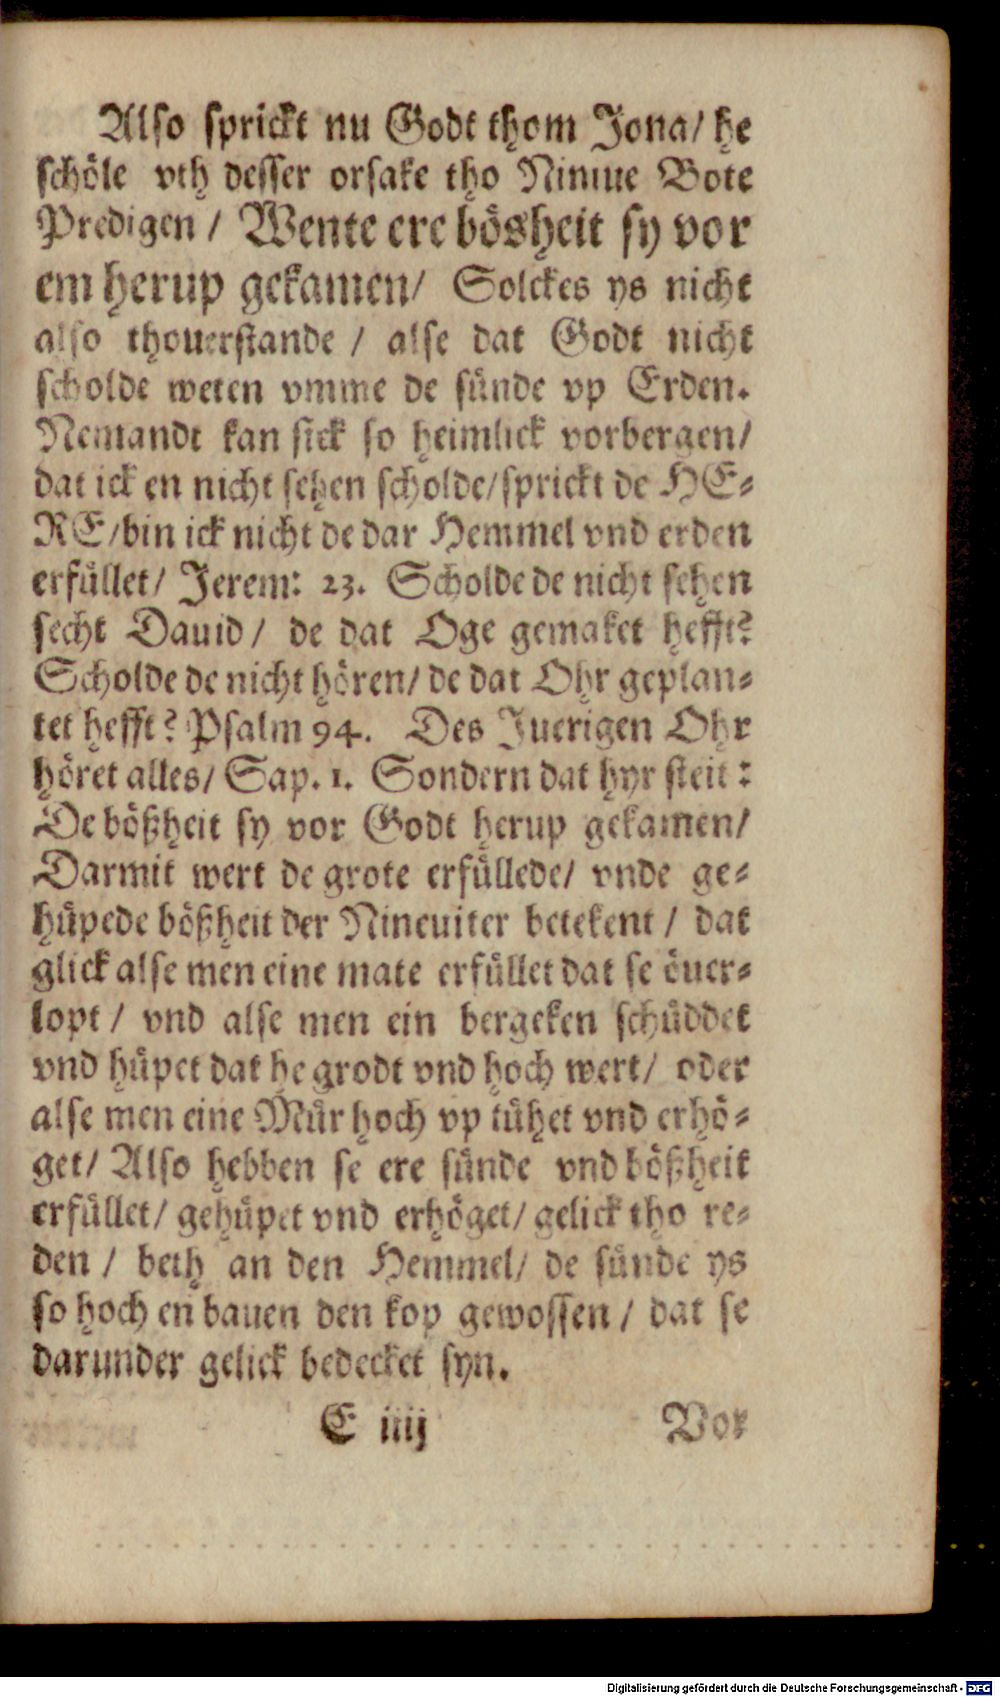 Also sprickt nu Godt thom Jona/ he
schöle vth desser orsake tho Niniue Bote
Predigen / Wente ere bösheit sy vor
em herup gekamen/ Solckes ys nicht
also thouerstande / alse dat Godt nicht
scholde weten vmme de sünde vp Erden.
Nemandt kan sick so heimlick vorbergen/
dat ick en nicht sehen scholde/sprickt de HE-
RE/bin ick nicht de dar Hemmel vnd erden
erfüllet/ Jerem: 23. Scholde de nicht sehen
secht Dauid/ de dat Oge gemaket hefft?
Scholde de nicht hören/ de dat Ohr geplan-
tet hefft? Psalm 94. Des Juerigen Ohr
höret alles/ Sap. 1. Sondern dat hyr steit:
De bößheit sy vor Godt herup gekamen/
Darmit wert de grote erfüllede/ vnde ge-
hüpede bößheit der Nineuiter betekent / dat
glick alse men eine mate erfüllet dat se öuer-
lopt / vnd alse men ein bergeken schüddet
vnd hüpet dat he grodt vnd hoch wert/ oder
alse men eine Mür hoch vp tühet vnd erhö-
get/ Also hebben se ere sünde vnd bößheit
erfüllet/ gehüpet vnd erhöget/ gelick tho re-
den / beth an den Hemmel/ de sünde ys
so hoch en bauen den kop gewossen / dat se
darunder gelick bedecket syn.
E iiij Vor
Digitalisierung gefördert durch die Deutsche Forschungsgemeinschaft - DFG